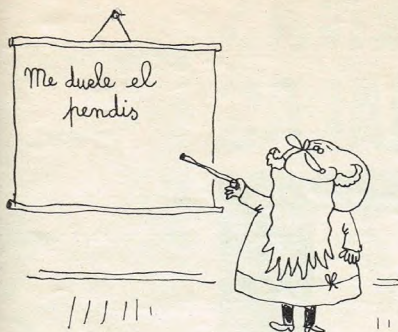 Me duele el
pendis